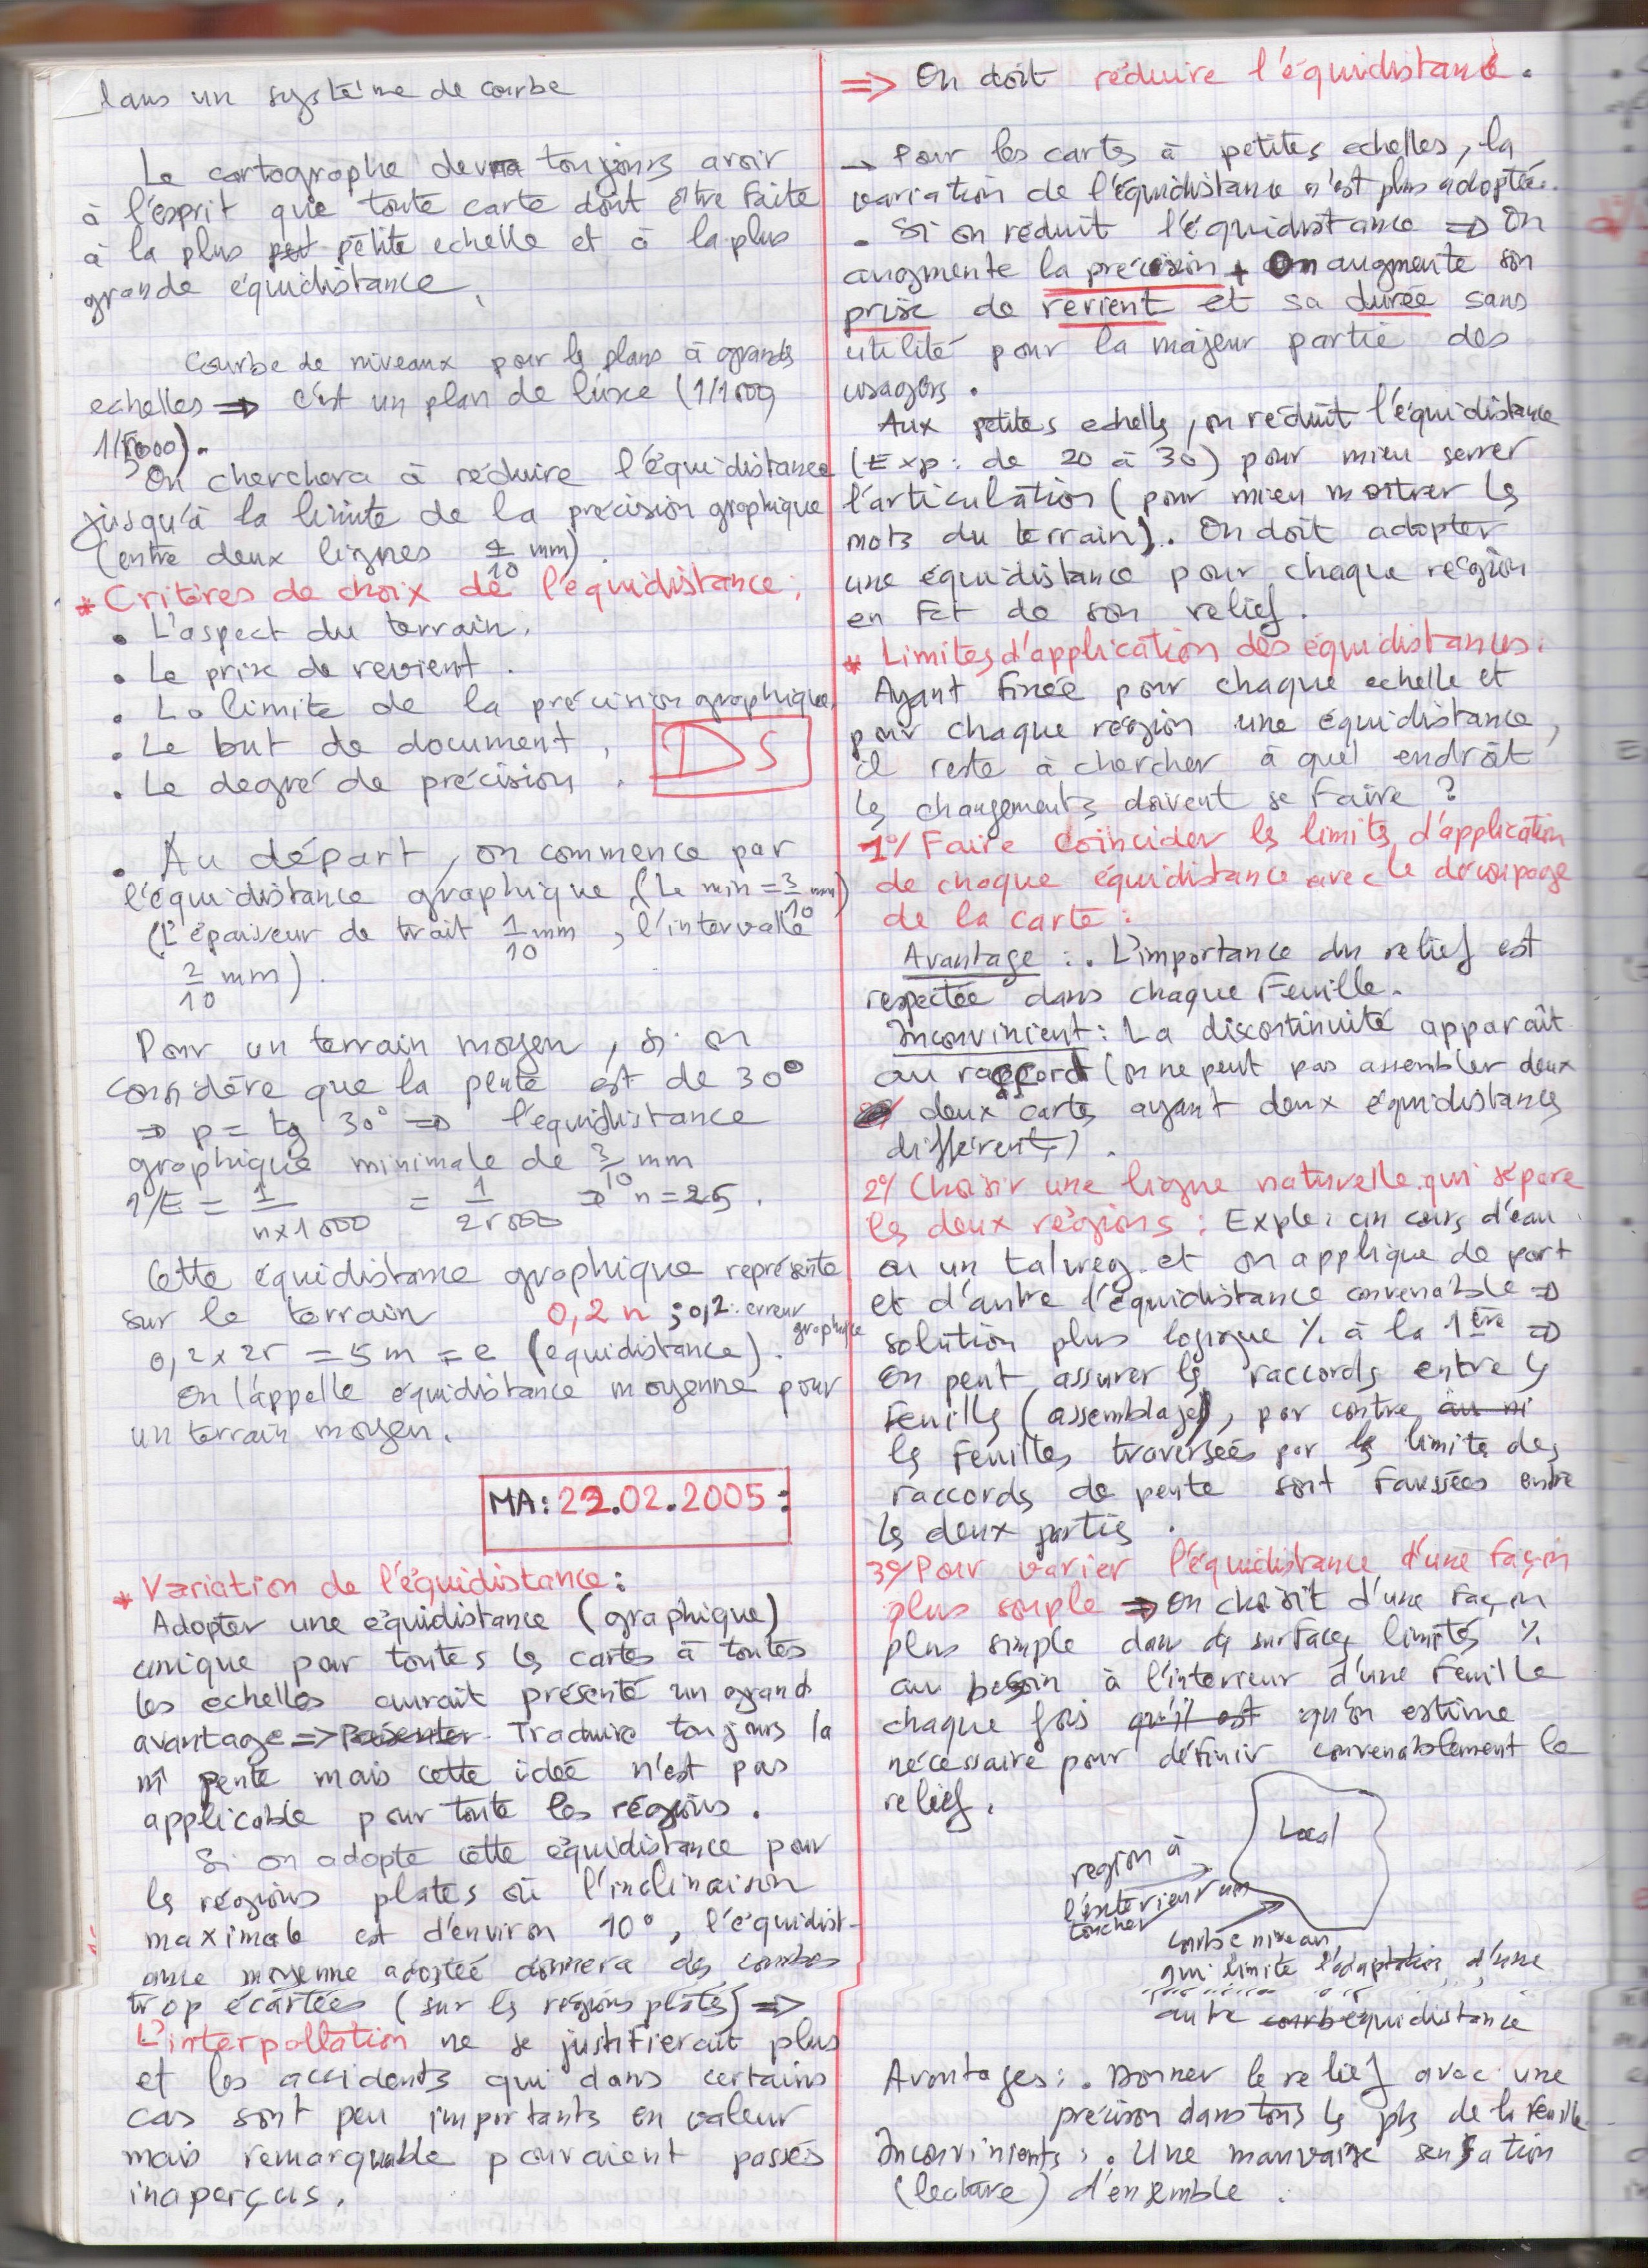 dans un système de courbe
Le cartographe devra toujours avoir
à l'esprit que toute carte doit être faite
à la plus petite echelle et à la plus
grande équidistance.
Courbe de niveaux pour les plans à grands
echelles => c'est un plan de luxe (1/1000,
1/5000).
On cherchera à réduire l'équidistance
jusqu'à la limite de la précision graphique
(entre deux lignes 1/10 mm).
* Critères de choix de l'équidistance:
• L'aspect du terrain.
• Le prix de revient.
• La limite de la précision graphique.
• Le but de document.
• Le degré de précision.
DS
• Au départ, on commence par
l'équidistance graphique (Le min = 3/10 mm)
(L'épaisseur de trait 1/10 mm, l'intervalle
2/10 mm).
Pour un terrain moyen, si on
considère que la pente est de 30°
=> p = tg 30° => l'équidistance
graphique minimale de 3/10 mm
1/E = 1/(n×1000) = 1/25000 => n = 25.
Cette équidistance graphique représente
sur le terrain 0,2 n ; 0,2: erreur graphique
0,2 x 25 = 5 m = e (équidistance).
On l'appelle équidistance moyenne pour
un terrain moyen.
MA: 22.02.2005:
* Variation de l'équidistance:
Adopter une équidistance (graphique)
unique pour toutes les cartes à toutes
les echelles aurait présenté un grand
avantage => Traduire toujours la
m̂ pente mais cette idée n'est pas
applicable pour toute les régions.
Si on adopte cette équidistance pour
les régions plates où l'inclinaison
maximale est d'environ 10°, l'équidist-
ance moyenne adoptée donnera des courbes
trop écartées (sur les régions plates) =>
L'interpollation ne se justifierait plus
et les accidents qui dans certains
cas sont peu importants en valeur
mais remarquable pouvaient passés
inaperçus.
=> On doit réduire l'équidistance.
→ Pour les cartes à petites echelles, la
variation de l'équidistance n'est plus adoptée.
• Si on réduit l'équidistance => On
augmente la précision + On augmente son
prix de revient et sa durée sans
utilité pour la majeur partie des
usagers.
Aux petites echelles, on réduit l'équidistance
(Exp: de 20 à 30) pour mieu serrer
l'articulation (pour mieu montrer les
mots du terrain). On doit adopter
une équidistance pour chaque région
en Fct de son relief.
* Limites d'application des équidistances:
Ayant Fixée pour chaque echelle et
pour chaque région une équidistance,
il reste à chercher à quel endroit
les changements doivent se Faire ?
1°/ Faire coincider les limites d'application
de chaque équidistance avec le découpage
de la carte:
Avantage : • L'importance du relief est
respectée dans chaque Feuille.
Inconvinient: La discontinuité apparaît
au raccord (on ne peut pas assembler deux
deux cartes ayant deux équidistances
différentes).
2°/ Choisir une ligne naturelle qui sépare
les deux régions: Exple: un cours d'eau
ou un talweg et on applique de part
et d'autre l'équidistance convenable =>
solution plus logique % à la 1ère =>
On peut assurer les raccords entre les
Feuilles (assemblages), par contre
les Feuilles traversées par la limite des
raccords de pente sont Faussées entre
les deux parties.
3°/ Pour varier l'équidistance d'une façon
plus souple => on choisit d'une Façon
plus simple dans des surfaces limités %
au besoin à l'interieur d'une Feuille
chaque fois qu'il est qu'on estime
nécessaire pour définir convenablement le
relief.
Local
region à
l'interieur
toucher
courbe niveau
qui limite l'adaptation d'une
autre équidistance
Avantages: • Donner le relief avec une
précison dans tous les pts de la feuille.
Inconvinients: • Une mauvaise sensation
(lecture) d'ensemble.